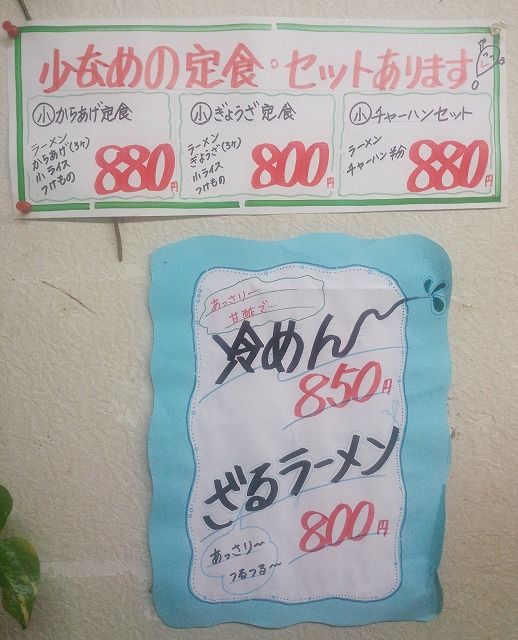 少なめの定食・セットあります!
小 からあげ定食
ラーメン
からあげ(3ケ)
小ライス
つけもの
880円
小 ぎょうざ定食
ラーメン
ぎょうざ(3ケ)
小ライス
つけもの
800円
小 チャーハンセット
ラーメン
チャーハン
880円
あっさり一
甘酢で…
冷めん〜
850円
ざるラーメン
800円
あっさり〜
つるつる〜